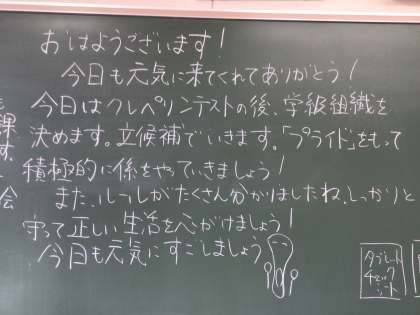 おはようございます!
今日も元気に来てくれてありがとう!
今日はクレペリンテストの後、学級組織を
決めます。立候補でいきます。「プライド」をもって
積極的に係をやっていきましょう!
また、ルールがたくさん分かりましたね。しっかりと
守って正しい生活を心がけましょう!
今日も元気にすごしましょう
課
す。
会
タブレット
チェック
シート